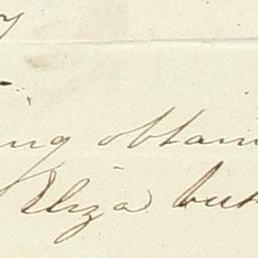 y
ing obtain
Eliza but